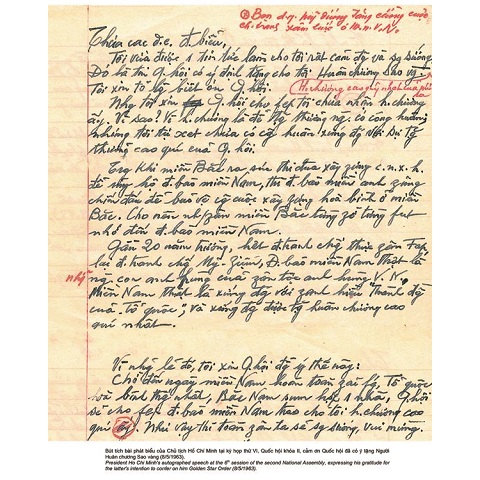 ② Bọn đ.q. Mỹ đương tăng cường cuộc
ch. tranh xâm lược ở M.n. V.N.
Thưa các đ.c. đ. biểu,
Tôi vừa được 1 tin tức làm cho tôi rất cảm động và sung sướng
Đó là tin Q. hội có ý định tặng cho tôi Huân chương Sao vàng
H. chương cao quý nhất của nước ta
Tôi xin tỏ lòng biết ơn Q. hội.
Nhưng tôi xin Q. hội cho phép tôi chưa nhận h. chương
ấy. Vì sao? Vì h. chương là để tặng thưởng người có công huân,
nhưng tôi tự xét chưa có công huân xứng đáng với sự tặng
thưởng cao quý của Q. hội.
Trong khi miền Bắc ra sức thi đua xây dựng c.n.x.h.
để ủng hộ đ. bào miền Nam, thì đ. bào miền Nam anh dũng
chiến đấu để bảo vệ công cuộc xây dựng hoà bình ở miền
Bắc. Cho nên nhân dân miền Bắc từng giờ từng phút
nhớ đến đ. bào miền Nam.
Gần 20 năm trường, hết đ. tranh chống thực dân Pháp
lại đ. tranh chống Mỹ - Diệm, Đ. bào miền Nam thật là
những con anh hùng của dân tộc anh hùng V.N.,
Miền Nam thật là xứng đáng với danh hiệu "Thành đồng
của Tổ quốc" và xứng đáng được tặng huân chương cao
quí nhất.
Vì những lẽ đó, tôi xin Q. hội đồng ý thế này:
Chờ đến ngày miền Nam hoàn toàn giải phóng, Tổ quốc
hoà bình thống nhất, Bắc Nam sum họp 1 nhà, Q. hội
sẽ cho phép đ. bào miền Nam trao cho tôi h. chương cao
quí. Như vậy thì toàn dân ta sẽ sung sướng, vui mừng.
Bút tích bài phát biểu của Chủ tịch Hồ Chí Minh tại kỳ họp thứ VI, Quốc hội khóa II, cảm ơn Quốc hội đã có ý tặng Người
Huân chương Sao vàng (8/5/1963).
President Ho Chi Minh's autographed speech at the 6th session of the second National Assembly, expressing his gratitude for
the latter's intention to confer on him Golden Star Order (8/5/1963).